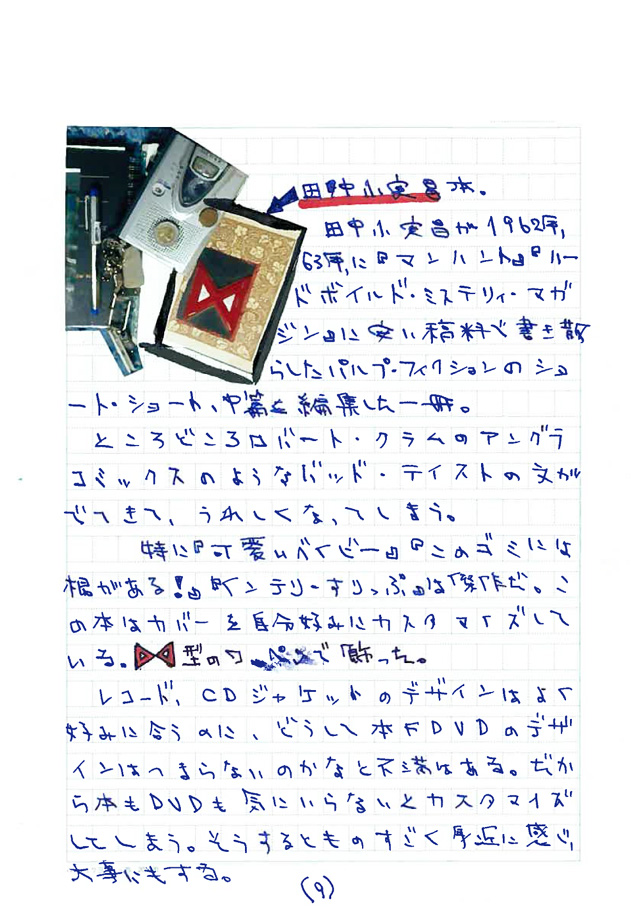 田中小実昌本。
田中小実昌が1962年,
63年,に『マンハント』『ハー
ドボイルド・ミステリィ・マガ
ジン』に安い稿料で書き散
らしたパルプ・フィクションのショ
ート・ショート、中篇を編集した一冊。
ところどころロバート・クラムのアングラ
コミックスのようなバッド・テイストの文が
でてきて、うれしくなってしまう。
特に『可愛いベイビー』『このゴミには
根がある!』『インテリ・すりっぷ』は傑作だ。こ
の本はカバーを自分好みにカスタマイズして
いる。型のワッペンで飾った。
レコード、CDジャケットのデザインはよく
好みに合うのに、どうして本やDVDのデザ
インはつまらないのかなと不満はある。だか
ら本もDVDも気にいらないとカスタマイズ
してしまう。そうするとものすごく身近に感じ,
大事にもする。
(9)